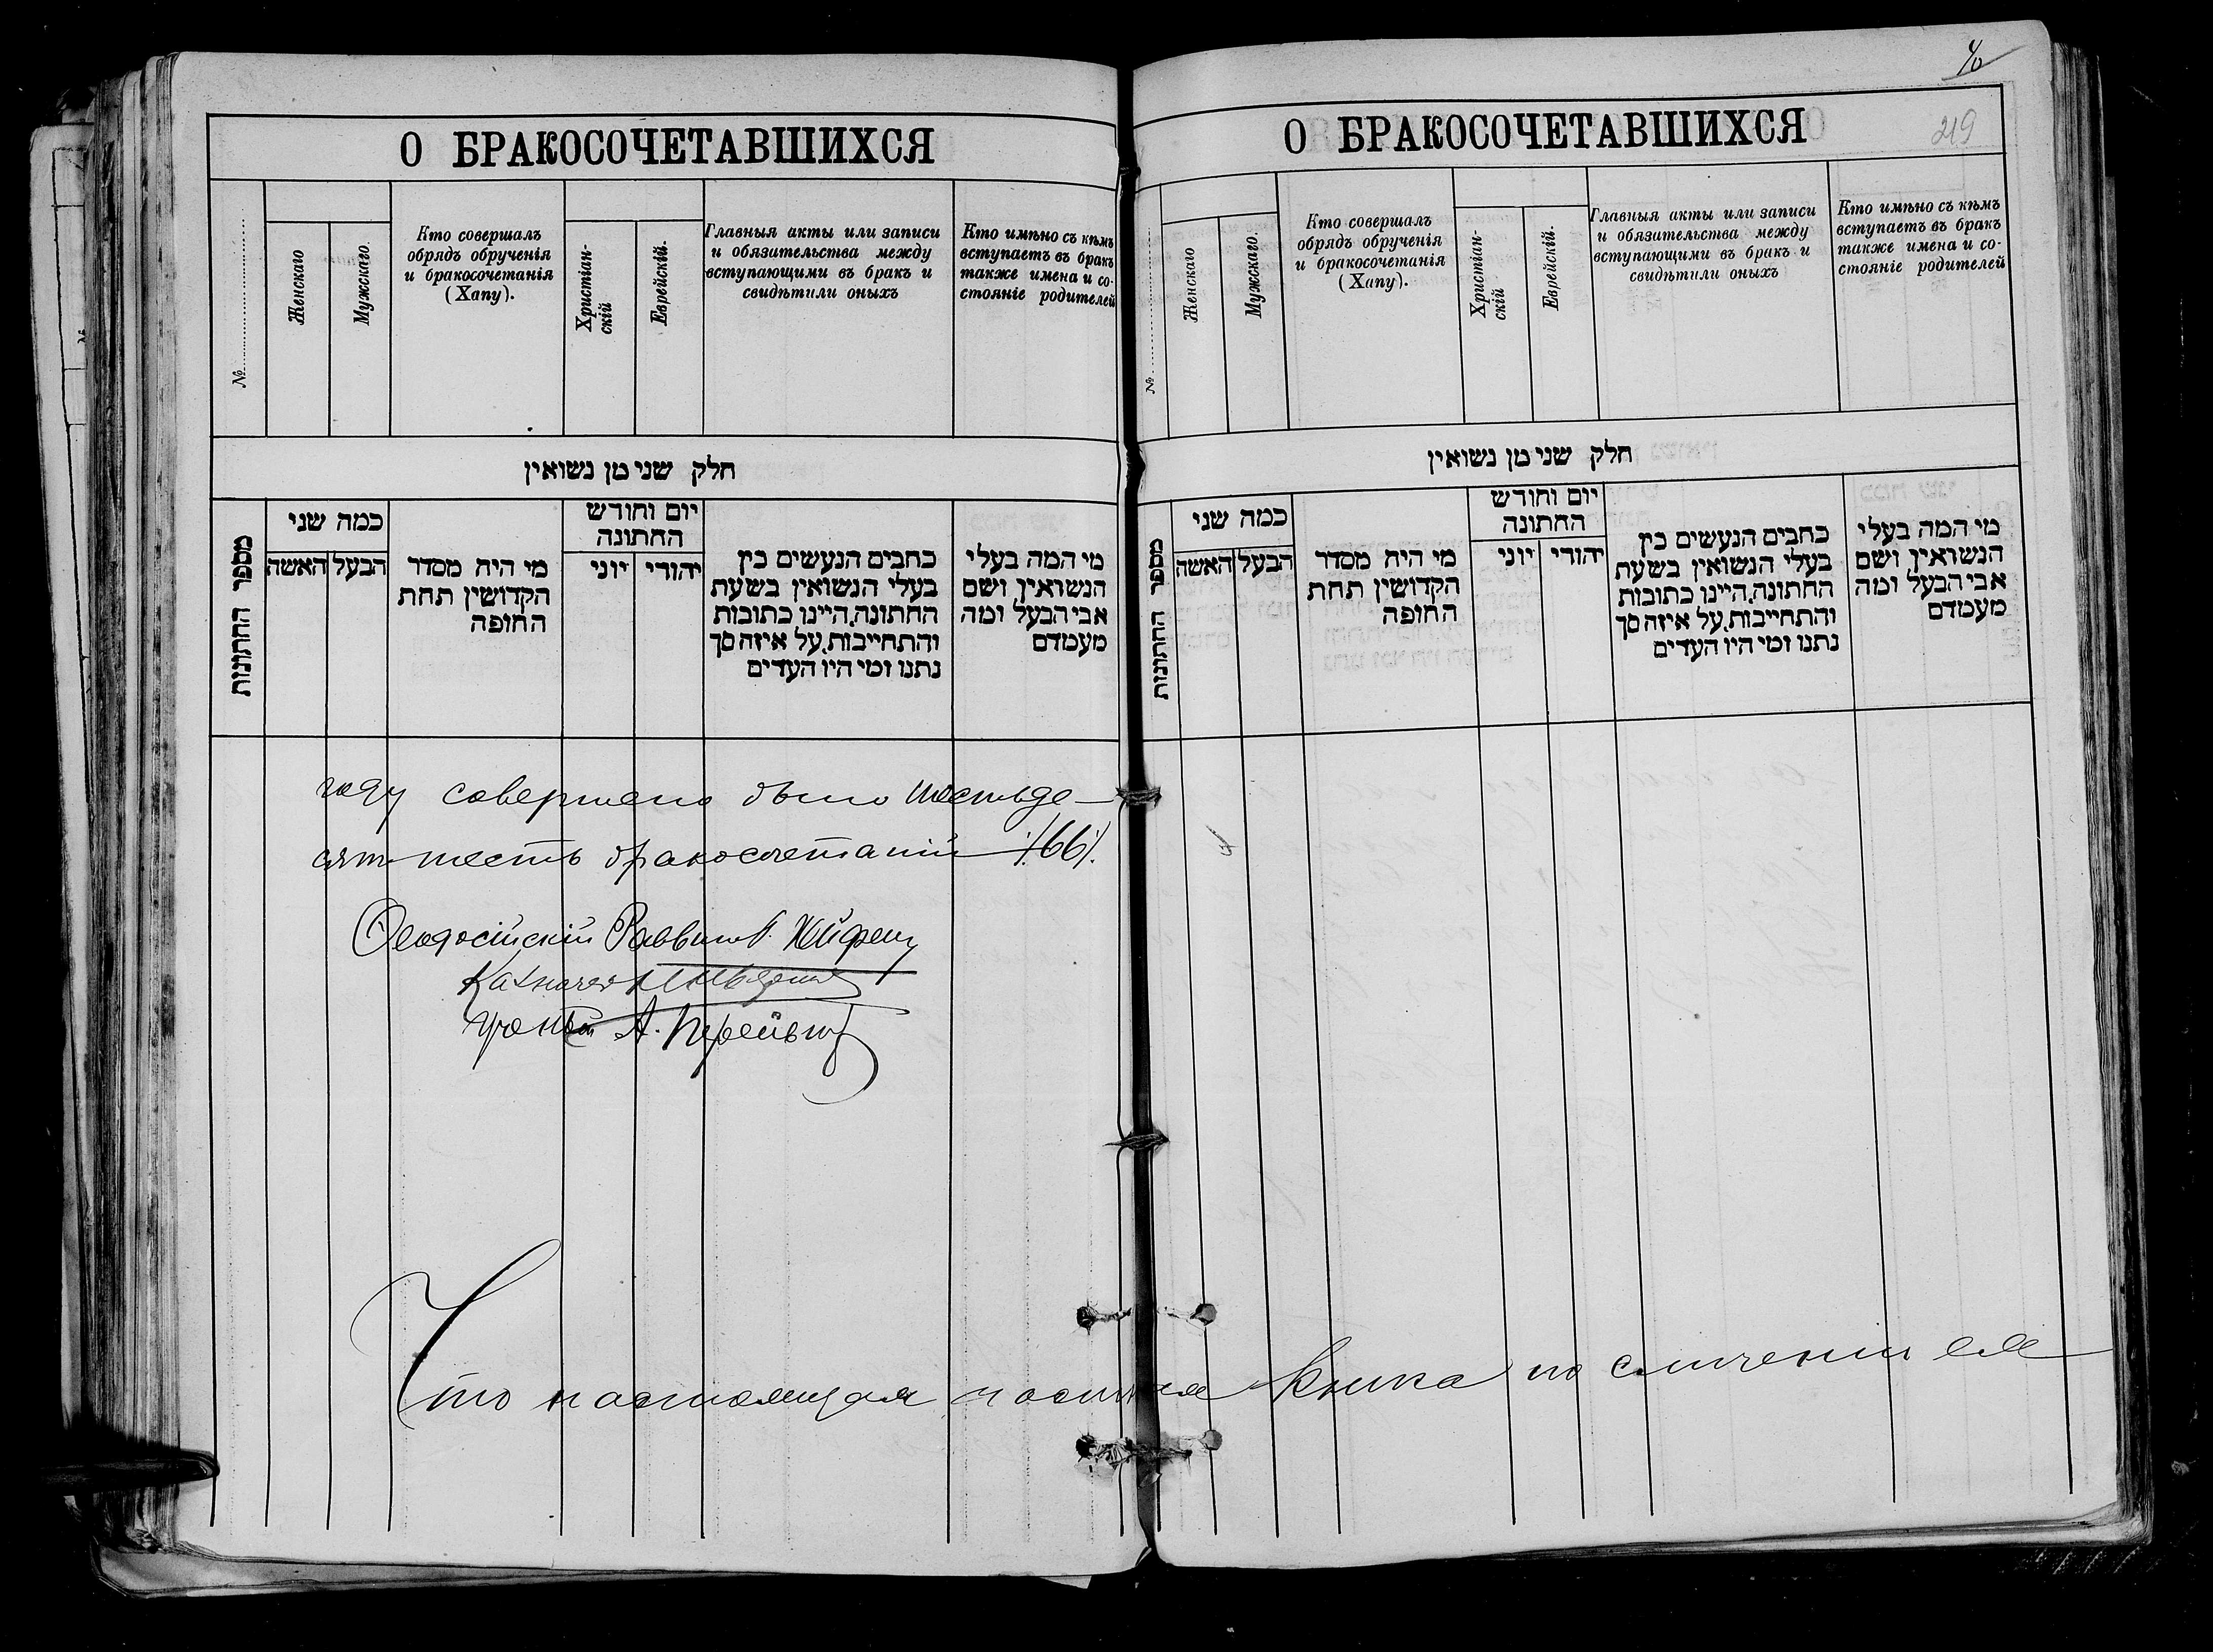 О БРАКОСОЧЕТАВШИХСЯ
№
Женскаго
Мужескаго
Кто совершалъ
обрядъ обрученія
и бракосочетанія
(Хапу).
Христіан-
скій
Еврейскій.
Главныя акты или записи
и обязательства между
вступающими въ бракъ и
свидѣтили оныхъ
Кто имѣно съ кѣмъ
вступаетъ въ бракъ
также имена и со-
стояніе родителей
חלק שני מן נשואין
מספר החתונות
כמה שני
האשה
הבעל
מי היה מסדר
הקדושין תחת
החופה
יום וחודש
החתונה
יוני
יהודי
כתבים הנעשים בין
בעלי הנשואין בשעת
החתונה, היינו כתובות
והתחייבות, על איזה סך
נתנו ומי היו העדים
מי המה בעלי
הנשואין ושם
אבי הבעל ומה
מעמדם
году совершено было шестьде-
сятъ шесть бракосочетаній /66/.
Ѳеодосійскій Раввинъ
Казначей
Ученый А.
Что настоящая
4/0
О БРАКОСОЧЕТАВШИХСЯ
219
№
Женскаго
Мужскаго.
Кто совершалъ
обрядъ обрученія
и бракосочетанія
(Хапу).
Христіан-
скій
Еврейскій.
Главныя акты или записи
и обязательства между
вступающими въ бракъ и
свидѣтили оныхъ
Кто имѣно съ кѣмъ
вступаетъ въ бракъ
также имена и со-
стояніе родителей
חלק שני מן נשואין
מספר החתונות
כמה שני
האשה
הבעל
מי היה מסדר
הקדושין תחת
החופה
יום וחודש
החתונה
יוני
יהודי
כתבים הנעשים בין
בעלי הנשואין בשעת
החתונה, היינו כתובות
והתחייבות, על איזה סך
נתנו ומי היו העדים
מי המה בעלי
הנשואין ושם
אבי הבעל ומה
מעמדם
книга по сличеніи ея